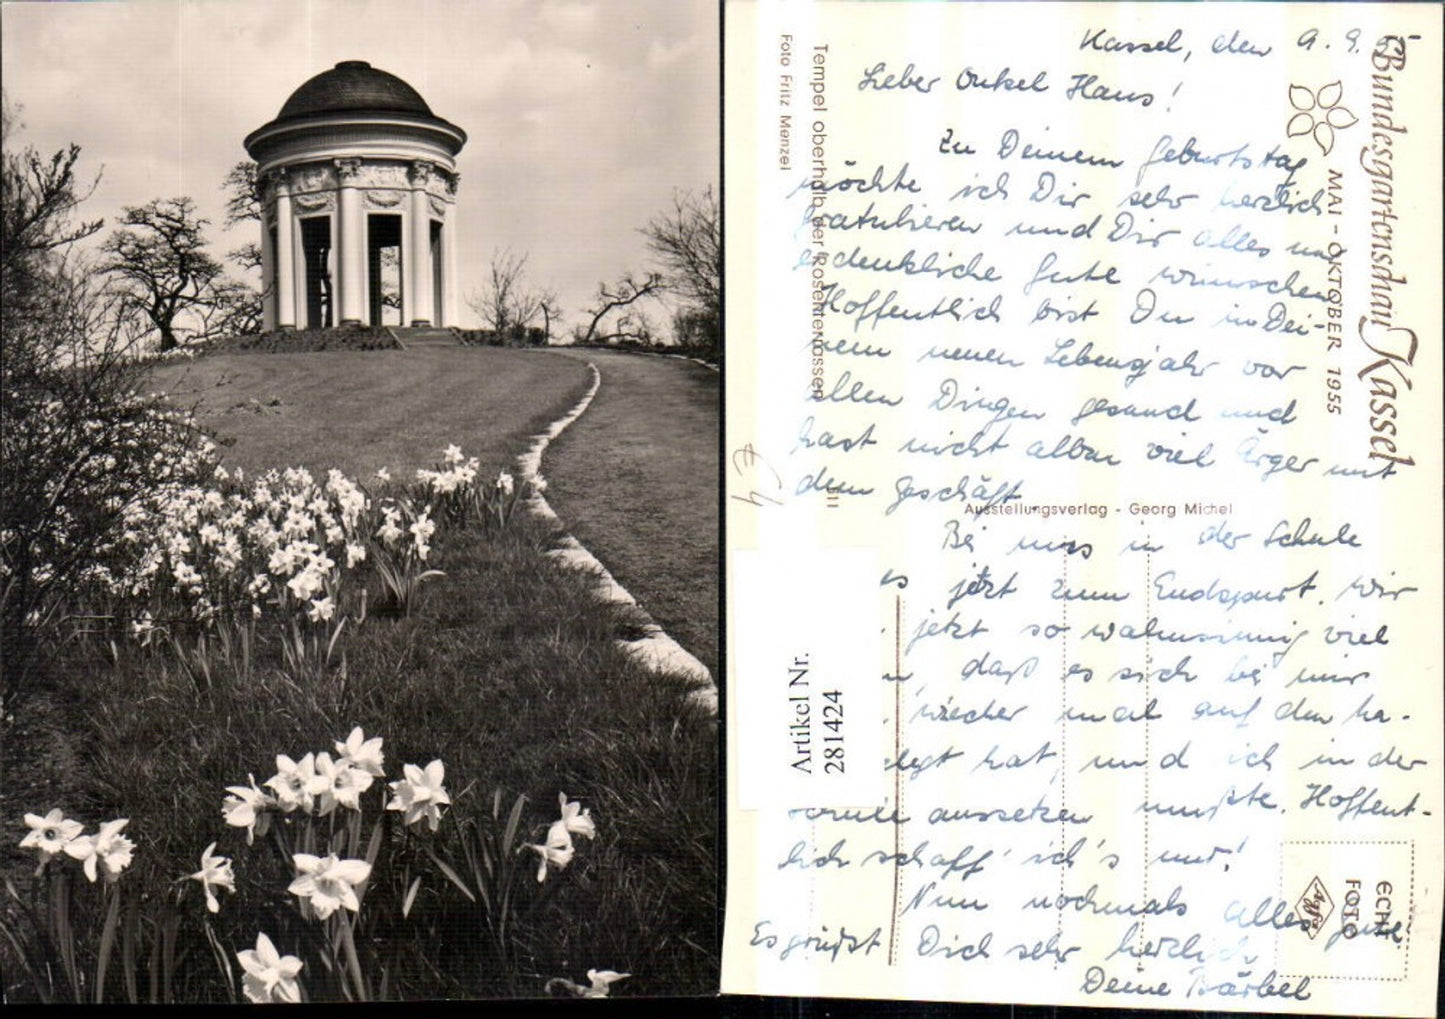 Kassel, den 9. 9. 55
Lieber Onkel Hans!
Zu Deinem Geburtstag
möchte ich Dir sehr herzlich
gratulieren und Dir alles
erdenkliche Gute wünschen
Hoffentlich bist Du in Dei-
nem neuen Lebensjahr vor
allen Dingen gesund und
hast nicht allzu viel Ärger mit
dem Geschäft
Bei uns in der Schule
es jetzt zum Endspurt. Wir
jetzt so wahnsinnig viel
daß es sich bei mir
wieder mal auf den Ma-
legt hat und ich in der
Schule aussetzen mußte. Hoffent-
lich schaff' ich's nur!
Nun nochmals alles Gute.
Es grüßt Dich sehr herzlich
Deine Bärbel
Bundesgartenschau Kassel
MAI - OKTOBER 1955
Tempel oberhalb der Rosenterrassen
Foto Fritz Menzel
Ausstellungsverlag - Georg Michel
Artikel Nr.
281424
ECHT
FOTO
Agfa